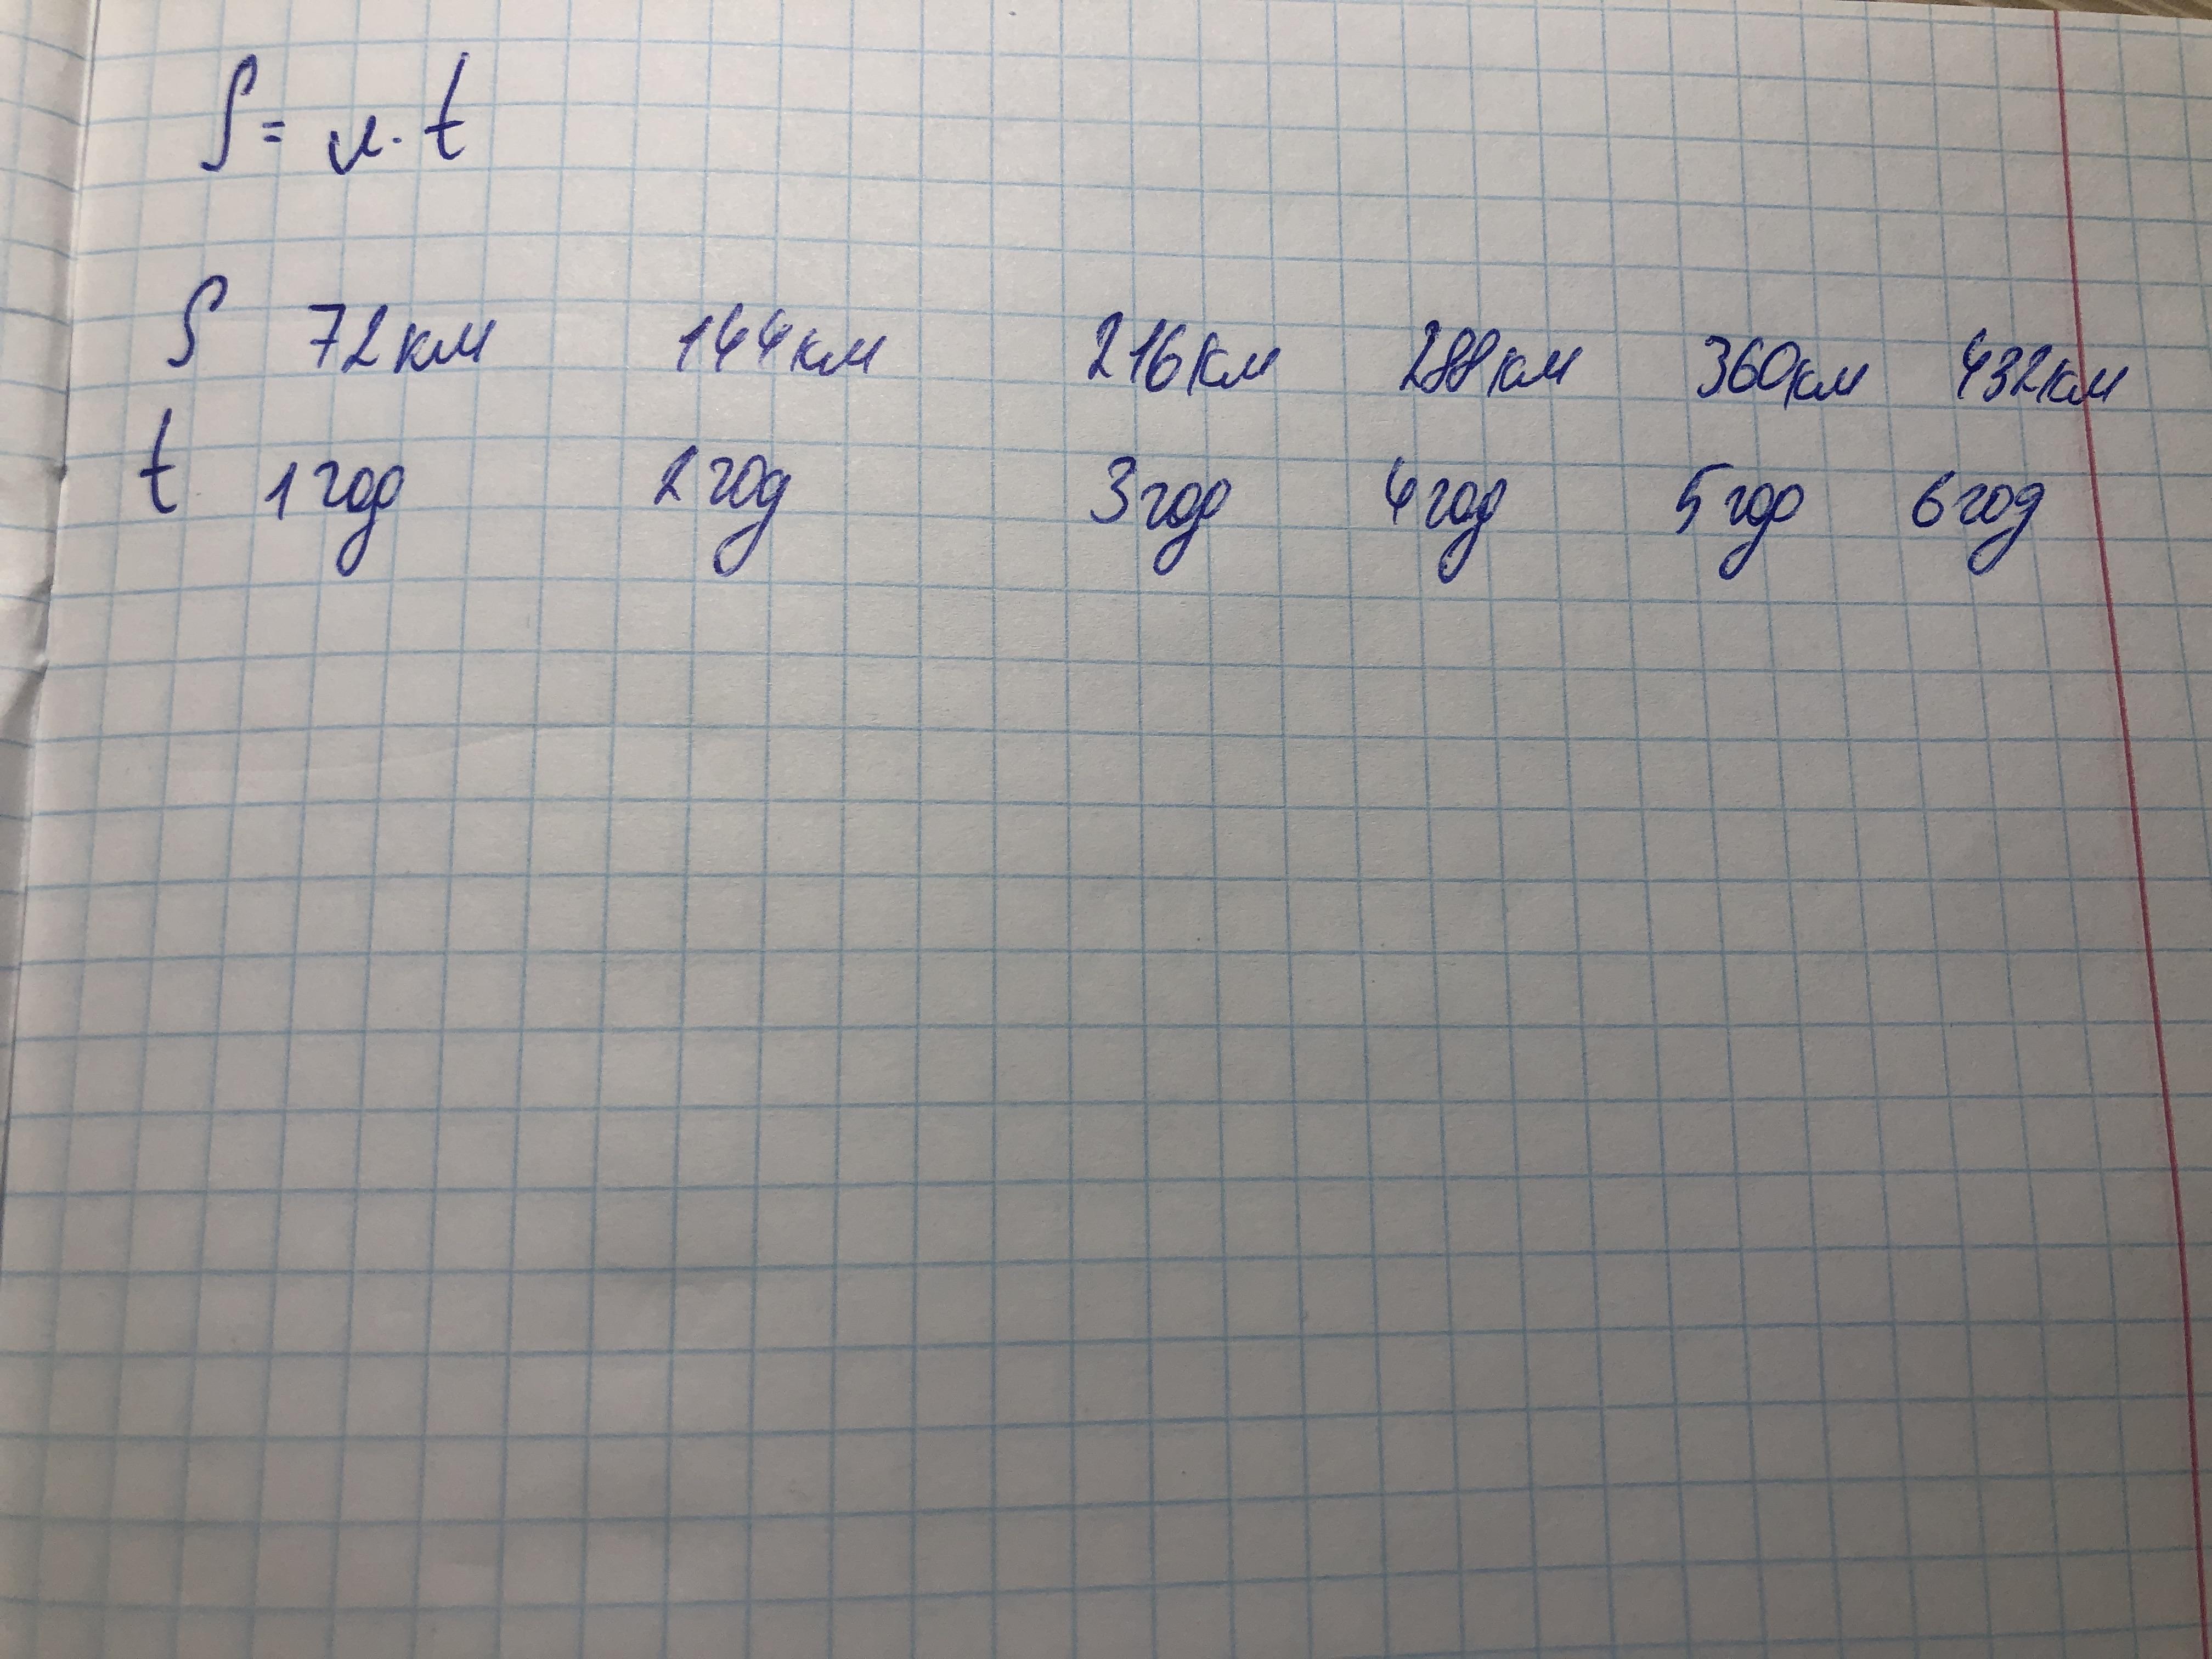 S = v · t
S 72км 144км 216км 288км 360км 432км
t 1год 2год 3год 4год 5год 6год